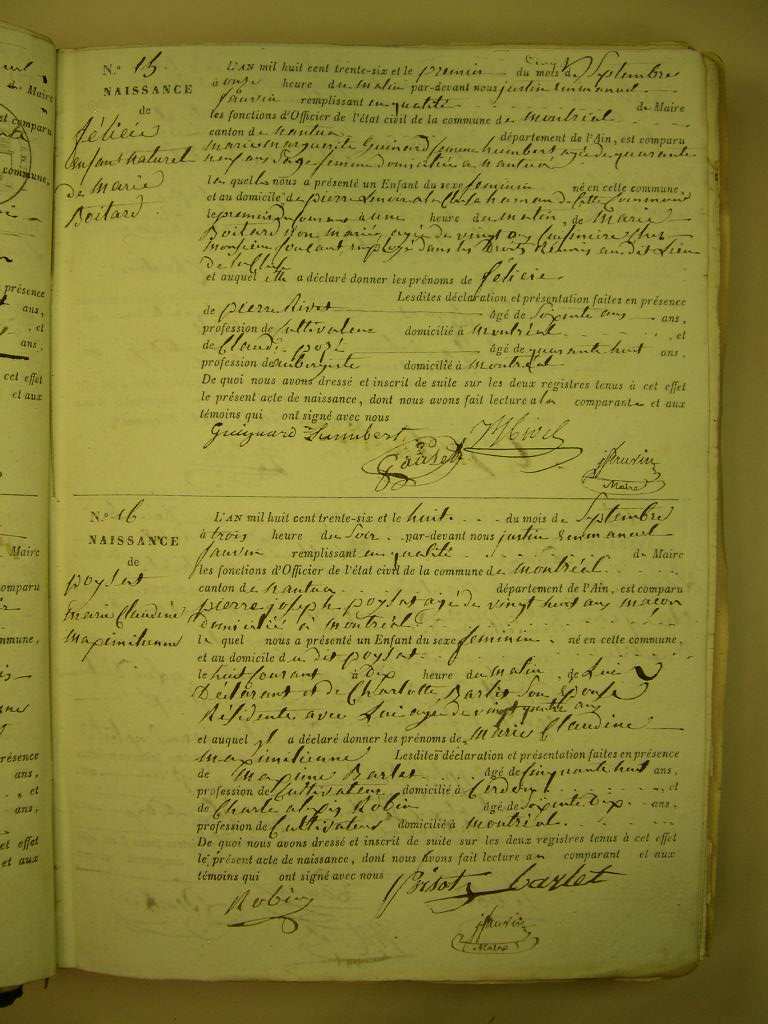 N.º 15
NAISSANCE
de
félicie
enfant naturel
de Marie
Boitard
L'AN mil huit cent trente-six et le premier du mois de Septembre
à onze heure du matin par-devant nous justin emmanuel
fauvin remplissant en qualité de Maire
les fonctions d'Officier de l'état civil de la commune de montréal
canton de nantua département de l'Ain, est comparu
Marie Marguerite Guinard femme humbert agée de quarante
neuf ans Sage femme domiciliée à nantua
la quelle nous a présenté un Enfant du sexe feminin né en cette commune,
et au domicile de pierre de cette Commune
le premier du courant à une heure du matin, de Marie
Boitard non mariée, agée de vingt ans Cuisinière chez
Monsieur employé dans les Droits Réunis au dit Lieu
de
et auquel elle a déclaré donner les prénoms de félicie
Lesdites déclaration et présentation faites en présence
de pierre âgé de Soixante ans,
profession de Cultivateur domicilié à Montréal et
de Claude âgé de quarante huit ans.
profession de aubergiste domicilié à Montréal
De quoi nous avons dressé et inscrit de suite sur les deux registres tenus à cet effet
le présent acte de naissance, dont nous avons fait lecture a la comparante et aux
témoins qui ont signé avec nous
Guignard humbert
jfauvin
Maire
N.º 16
NAISSANCE
de
poysat
marie Claudine
maximilienne
L'AN mil huit cent trente-six et le huit du mois de Septembre
à trois heure du Soir par-devant nous justin Emmanuel
fauvin remplissant en qualité de Maire
les fonctions d'Officier de l'état civil de la commune de montréal
canton de nantua département de l'Ain, est comparu
pierre joseph poysat agé de vingt huit ans maçon
domicilié à montréal
le quel nous a présenté un Enfant du sexe feminin né en cette commune,
et au domicile du dit poysat
le huit Courant à Dix heure du matin, de Lui
Déclarant et de Charlotte Barlet Son Epouse
Résidente avec Lui agée de vingt quatre ans
et auquel il a déclaré donner les prénoms de Marie Claudine
maximilienne Lesdites déclaration et présentation faites en présence
de Maxime Barlet âgé de Cinquante huit ans.
profession de Cultivateur domicilié à Cerdon et
de Charle alexis Robin âgé de Soixante Dix ans.
profession de Cultivateur domicilié à Montréal
De quoi nous avons dressé et inscrit de suite sur les deux registres tenus à cet effet
le présent acte de naissance, dont nous avons fait lecture au comparant et aux
témoins qui ont signé avec nous
Barlet
Robin
jfauvin
Maire